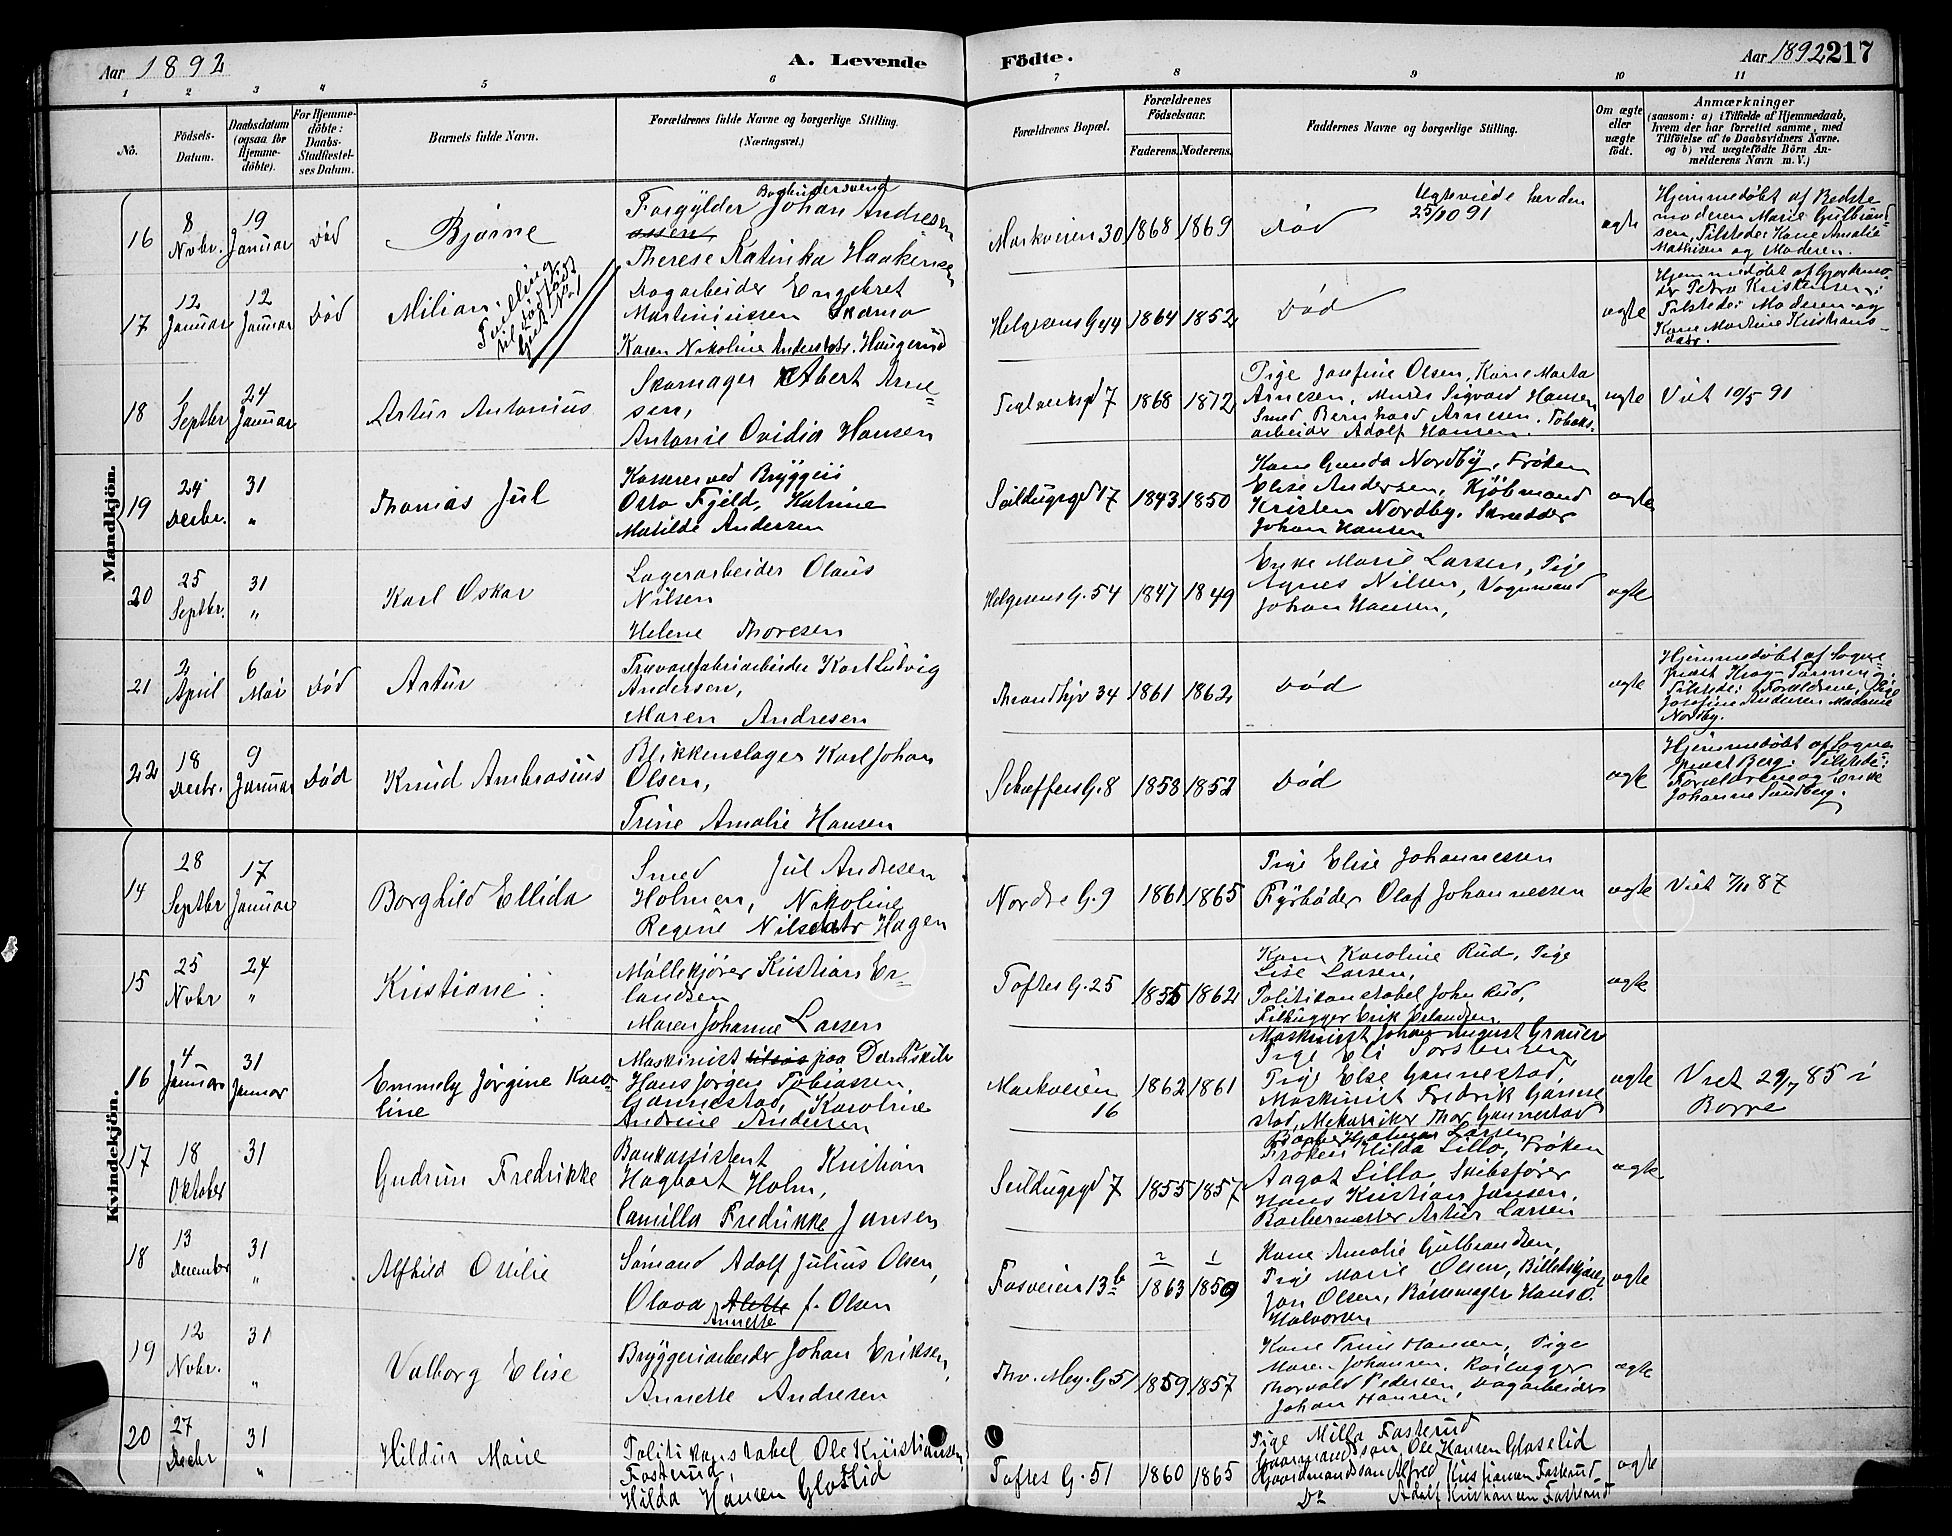 Aar 1892
A. Levende
Födte.
Aar 1892 217
1 2 3 4 5 6 7 8 9 10 11
No.
Födsels-
Datum.
Daabsdatum
(ogsaa for
Hjemme-
döbte).
For Hjemme-
döbte:
Daabs-
Stadfæstel-
ses Datum.
Barnets fulde Navn.
Forældrenes fulde Navne og borgerlige Stilling.
(Næringsvei.)
Forældrenes Bopæl.
Forældrenes
Födselsaar.
Faderens. Moderens.
Faddernes Navne og borgerlige Stilling.
Om ægte
eller
uægte
födt.
Anmærkninger
(saasom: a) i Tilfælde af Hjemmedaab,
hvem der har forrettet samme, med
Tilföielse af to Daabsvidners Navne.
og b) ved uægtefödte Börn An-
melderens Navn m. V.)
Mandkjön.
16
8
Novbr.
19
Januar
Död
Bjarne
Bogbindersvend
Forgylder Johan Andresen
Therese Katinka Haakensen
Markveien 30
1868
1869
Död
Ægteviede her den
25/10 91
ægte
Hjemmedøbt af Bedste
moderen Marie Gulbrand
sen, Tilstede: Kone Amalie
Mathisen og Moderen.
17
12
Januar
12
Januar
Död
Milian
Tvilling
til dødfødt
Gut No 1
Dagarbeider Engebret
Martiniussen Skamo
Karen Nikoline Andersdatr. Haugerud
Helgesens G. 44
1864
1852
Död
ægte
Hjemmedøbt af Gjordemo-
der Petra Kristensen;
Tilstede: Moderen og
Kone Martine Kristians-
datr.
18
Septbr
24
Januar
Artur Antonius
Skomager Albert Arne-
sen,
Antonie Ovidia Hansen
Teglverksgd 7
1868
1872
Pige Josefine Olsen, Kone Marta
Arnesen, Murer Sigvard Hansen
Smed Bernhard Arnesen. Tobaks-
arbeider Adolf Hansen.
ægte
Viet 10/5 91
19
24
Decbr.
31
"
Thomas Jul
Kasserer ved Bryggeri
Otto Fjeld, Katrine
Matilde Andersen
Seildugsgd 17
1843
1850
Kone Gunda Nordby, Frøken
Elise Andersen, Kjøbmand
Kristen Nordby. Skrædder
Johan Hansen
ægte
20
25
Septbr.
31
"
Karl Oskar
Lagerarbeider Olaus
Nilsen
Helene Thoresen
Helgesens G. 54
1847
1849
Enke Marie Larsen, Pige
Agnes Nilsen, Vognmand
Johan Hansen,
ægte
21
2
April
6
Mai
Död
Artur
Trævarefabrikarbeider Karl Ludvig
Andersen,
Maren Andresen
Trondhjv 34
1861
1862
Död
ægte
Hjemmedøbt af Sogne-
præst Krag-Tørning.
Tilstede: Forældrene, Pige
Josefine Andersen Madame
Nordby.
22
18
Decbr.
9
Januar
Död
Knud Ambrosius
Blikkenslager Karl Johan
Olsen,
Trine Amalie Hansen
Schæffers G. 8
1858
1852
Död
ægte
Hjemmedøbt af Sogne
præst Berg. Tilstede:
Forældrene og Enke
Johanne Sundberg.
Kvindekjön.
14
28
Septbr
17
Januar
Borghild Ellida
Smed Jul Andresen
Holmen, Nikoline
Regine Nilsdatr Hagen
Nordre G. 9
1861
1865
Pige Elise Johannessen
Fyrbøder Olaf Johannessen
ægte
Viet 7/11 87
15
25
Novbr
24
"
Kristiane
Møllekjører Kristian Er-
landsen
Maren Johanne Larsen
Toftes G. 25
1855
1862
Kone Karoline Rud, Pige
Lise Larsen,
Politikonstabel John Rud,
Filhugger Erik Erlandsen.
ægte
16
4
Januar
31
Januar
Emmely Jörgine Karo-
line
Maskinist paa Dampskib
Hans Jörgen Tobiassen
Gannestad, Karoline
Andrine Andersen
Markveien
16
1862
1861
Maskinist Johan August Grauer
Pige Eli Torstensen
Pige Else Gannestad,
Maskinist Fredrik Ganne
stad, Mekaniker Thor Gannestad
ægte
Viet 29/7 85 i
Borre
17
18
Oktober
31
Gudrun Fredrikke
Bankassistent Kristian
Hagbart Holm,
Camilla Fredrikke Jansen
Seildugsgd 7
1855
1857
Frøken Hilda Lillo, Frøken
Aagot Lillo, Skibsfører
Hans Kristian Jansen.
Barbermester Artur Larsen
ægte
18
13
December
31
"
Alfhild Otilie
Sømand Adolf Julius Olsen,
Olava Alette f. Olsen
Annette
Fosveien 13 b
2
1863
1
1859
Kone Amalie Gulbrandsen,
Pige Marie Olsen, Billetskjører
Jon Olsen, Børsemager Hans O.
Halvorsen
ægte
19
12
Novbr.
31
"
Valborg Elise
Bryggeriarbeider Johan Eriksen,
Annette Andresen
Thv. Mey. G 51
1859
1857
Kone Trine Hansen, Pige
Maren Johansen,
Thorvald Pedersen, Dagarbeider
Johan Hansen
ægte
20
27
Decbr
31
"
Hildur Marie
Politikonstabel Ole Kristiansen
Fosterud,
Hilda Hansen Gloslid
Toftes G. 51
1860
1865
Pige Milla Fosterud
Gaardmandssøn Ole Hansen Gloslid
Gaardmandssøn Alfred Kristiansen Fosterud
Do Adolf Kristiansen Fosterud
ægte